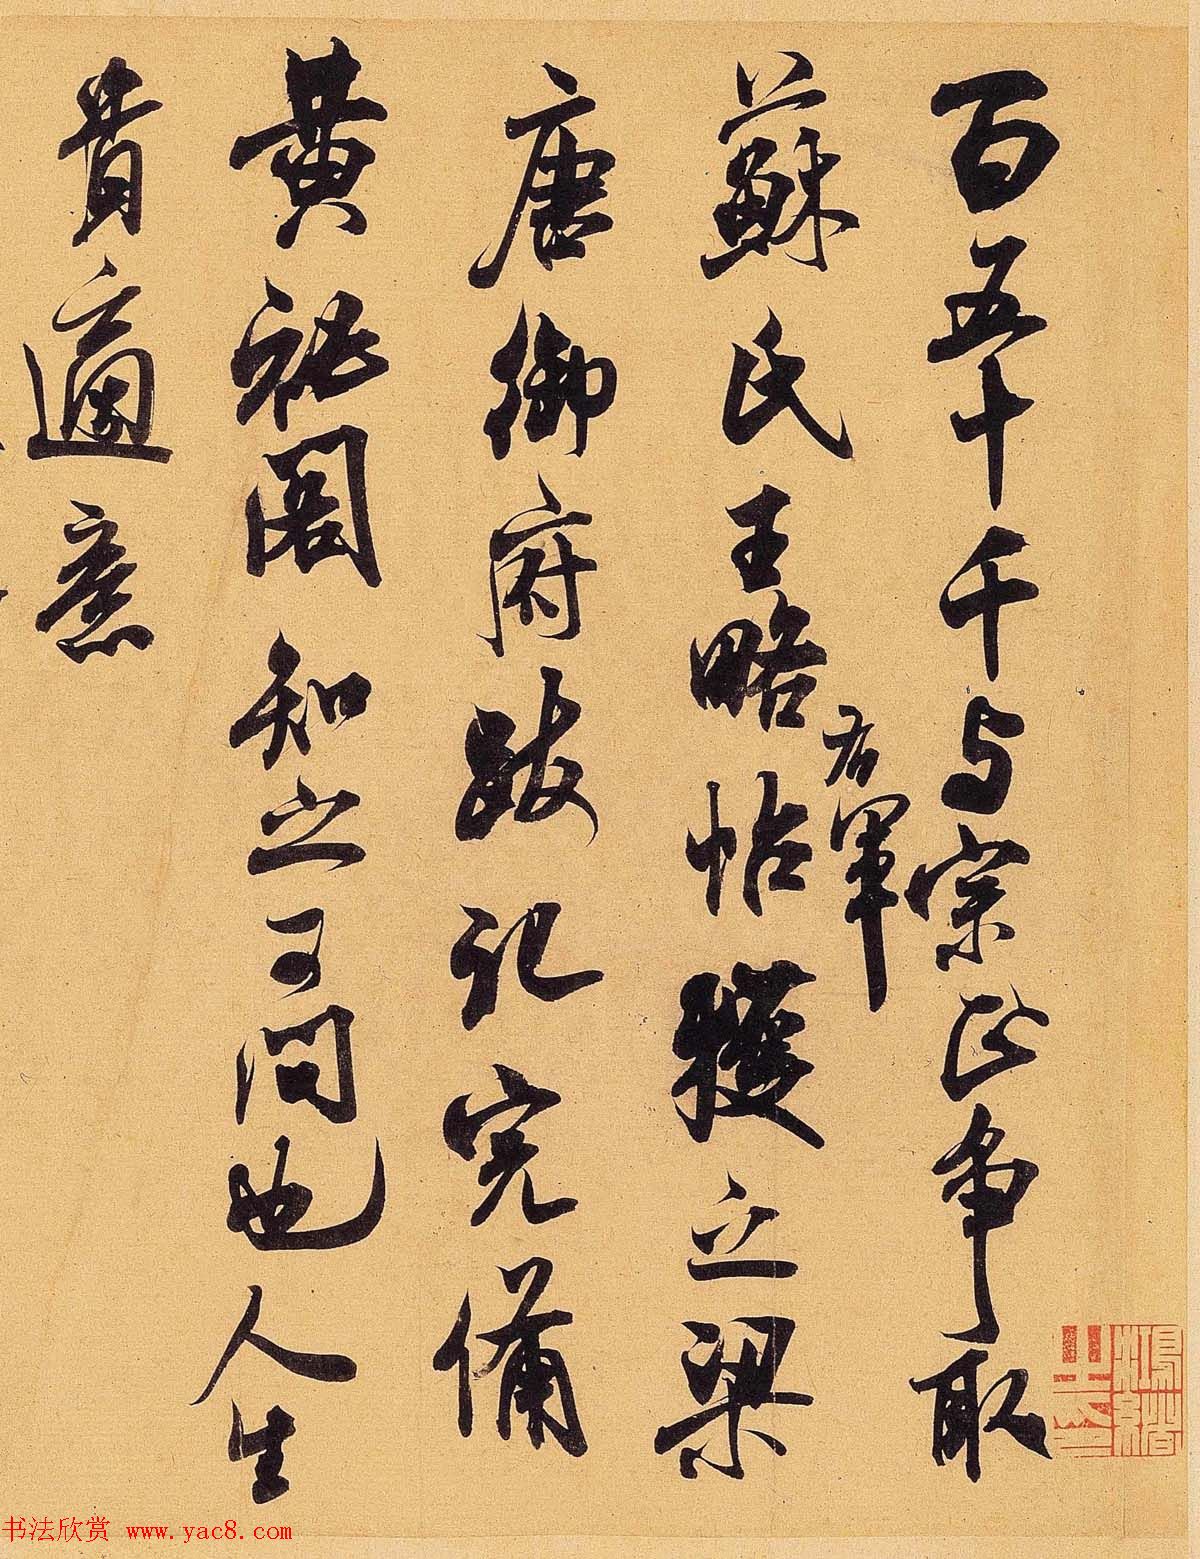 百五十千与宗正争取
蘇氏王略帖獲之梁
右軍
唐御府跋記完備
黄祕閣知之可問也人生
貴適意
书法欣赏 www.yac8.com